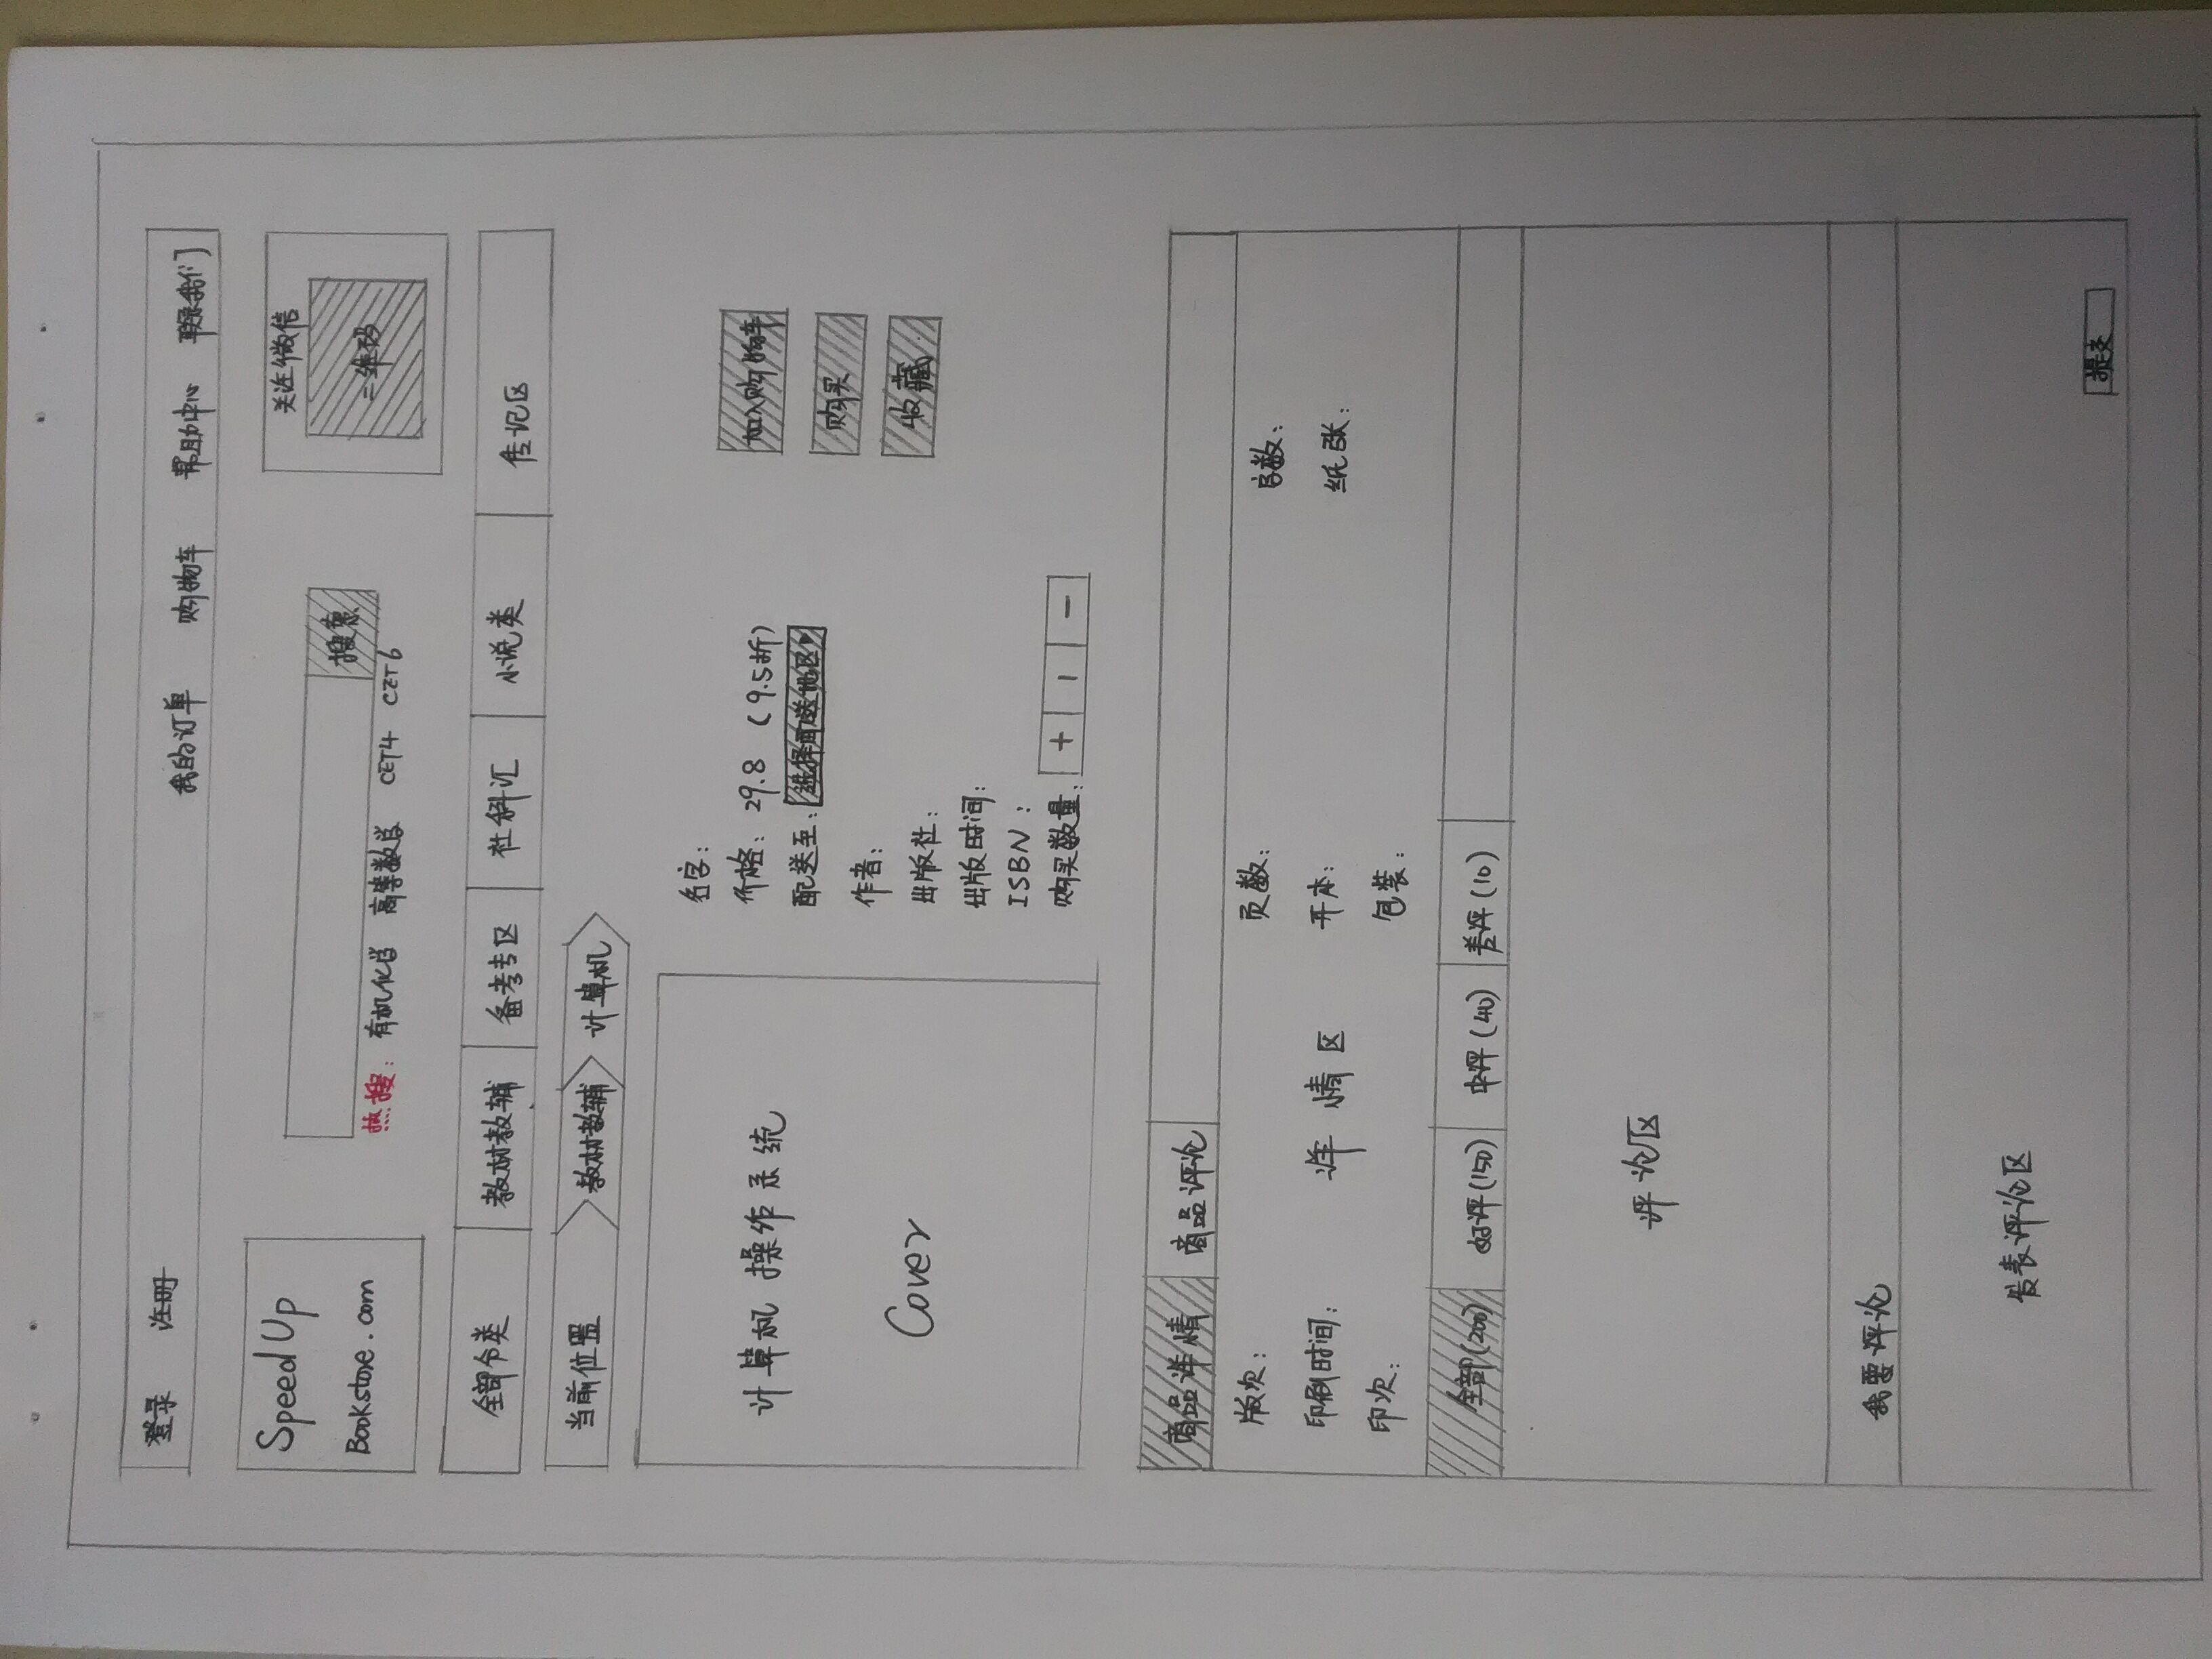 登录 注册 我的订单 购物车 帮助中心 联系我们
SpeedUp
Bookstore.com
搜索
热搜: 有机化学 高等数学 CET4 CET6
关注微信
二维码
全部分类 教材教辅 备考专区 社科汇 小说类 传记区
当前位置 教材教辅 计算机
计算机操作系统
Cover
名字:
价格: 29.8 (9.5折)
配送至: 选择配送地区
作者:
出版社:
出版时间:
ISBN:
购买数量: + 1 -
加入购物车
购买
收藏
商品详情 商品评论
版次: 页数: 字数:
印刷时间: 开本: 纸张:
详情区
印次: 包装:
全部(200) 好评(150) 中评(40) 差评(10)
评论区
我要评论
发表评论区
提交